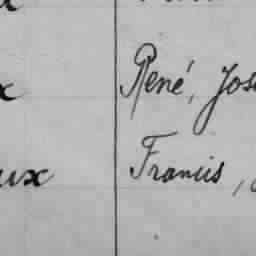 x René, Jos
ux Francis,